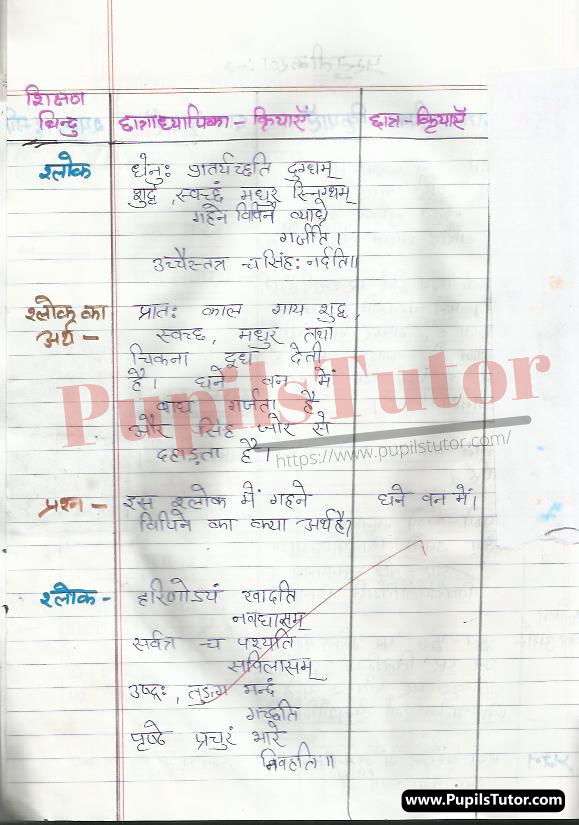 शिक्षण
बिन्दु
छात्राध्यापिका - क्रियाएँ
छात्र - क्रियाएँ
श्लोक
धेनुः प्रातर्यच्छति दुग्धम्
शुद्धं, स्वच्छं मधुर स्निग्धम्
गहने विपिने व्याघ्रे
गर्जति।
उच्चैस्तत्र च सिंहः नर्दति॥
श्लोक का
अर्थ -
प्रातः काल गाय शुद्ध,
स्वच्छ, मधुर तथा
चिकना दूध देती
है। घने वन में
बाघ गर्जता है
और सिंह जोर से
दहाड़ता है।
प्रश्न -
इस श्लोक में गहने
विपिने का क्या अर्थ है?
घने वन में।
श्लोक -
हरिणोऽयं खादति
नवघासम्
सर्वत्र च पश्यति
सविलासम्
उष्ट्रः, तुङ्ग मन्दं
गच्छति
पृष्ठे प्रचुरं भारं
निवहति॥
PupilsTutor
https://www.pupilstutor.com/
www.PupilsTutor.com